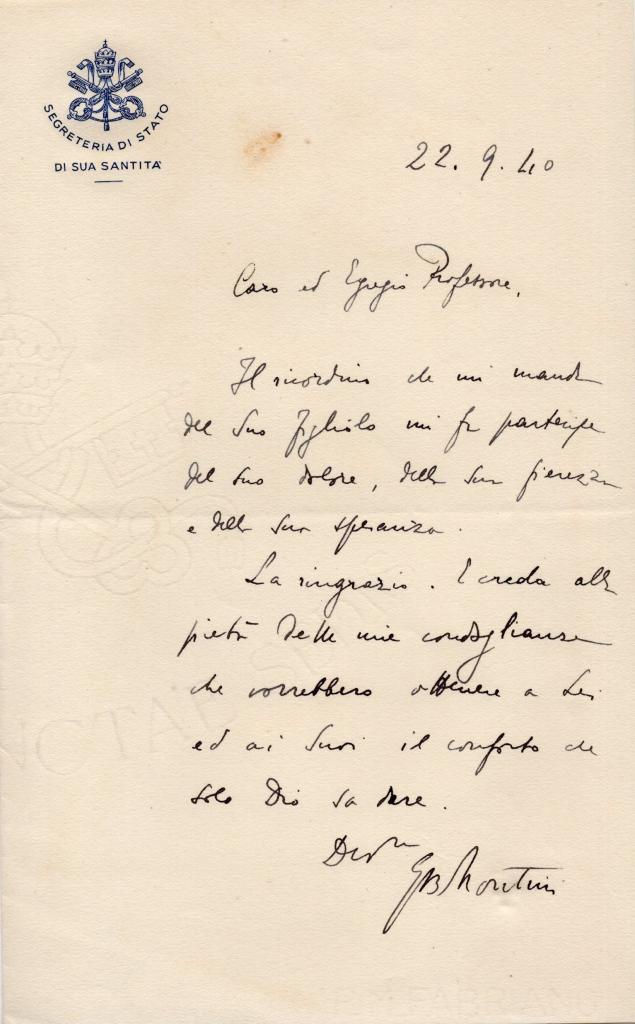 SEGRETERIA DI STATO
DI SUA SANTITA'
22.9.40
Caro ed Egregio Professore,
Il ricordino che mi manda
del Suo figliolo mi fa partecipe
del Suo dolore, della Sua fierezza
e della Sua speranza.
La ringrazio. E creda alla
pietà delle mie condoglianze
che vorrebbero ottenere a Lei
ed ai Suoi il conforto che
solo Dio sa dare.
Dev.mo
GBMontini
NCTAE SE
FABRIANO